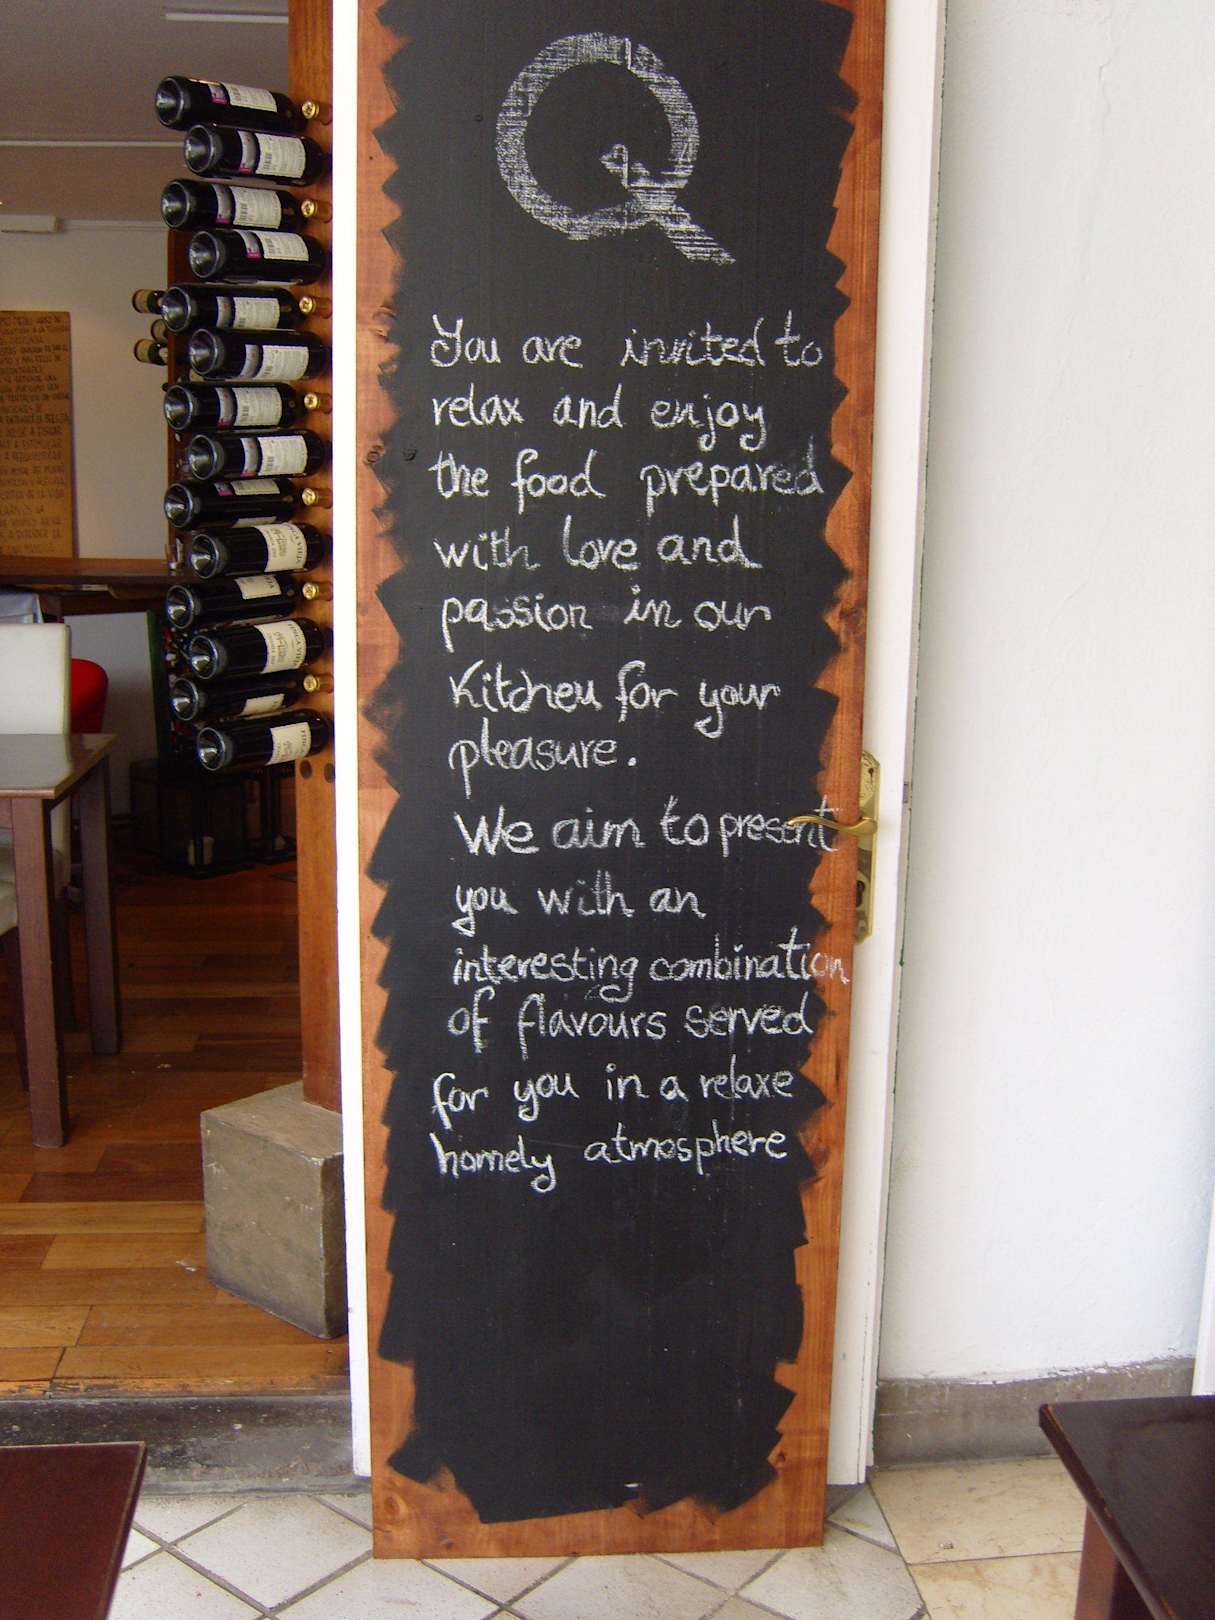 Q
You are invited to
relax and enjoy
the food prepared
with love and
passion in our
Kitchen for your
pleasure.
We aim to present
you with an
interesting combination
of flavours served
for you in a relaxe
homely atmosphere